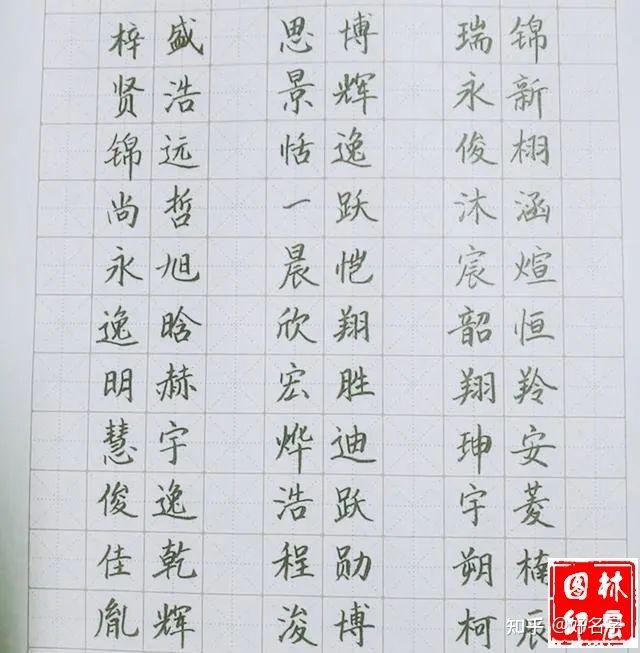 梓盛 思博 瑞锦
贤浩 景辉 永新
锦远 恬逸 俊栩
尚哲 一跃 沐涵
永旭 晨恺 宸煊
逸晗 欣翔 韶恒
明赫 宏胜 翔羚
慧宇 烨迪 珅安
俊逸 浩跃 宇菱
佳乾 程勋 朔楠
胤辉 浚博 柯辰
图林
印居
知乎